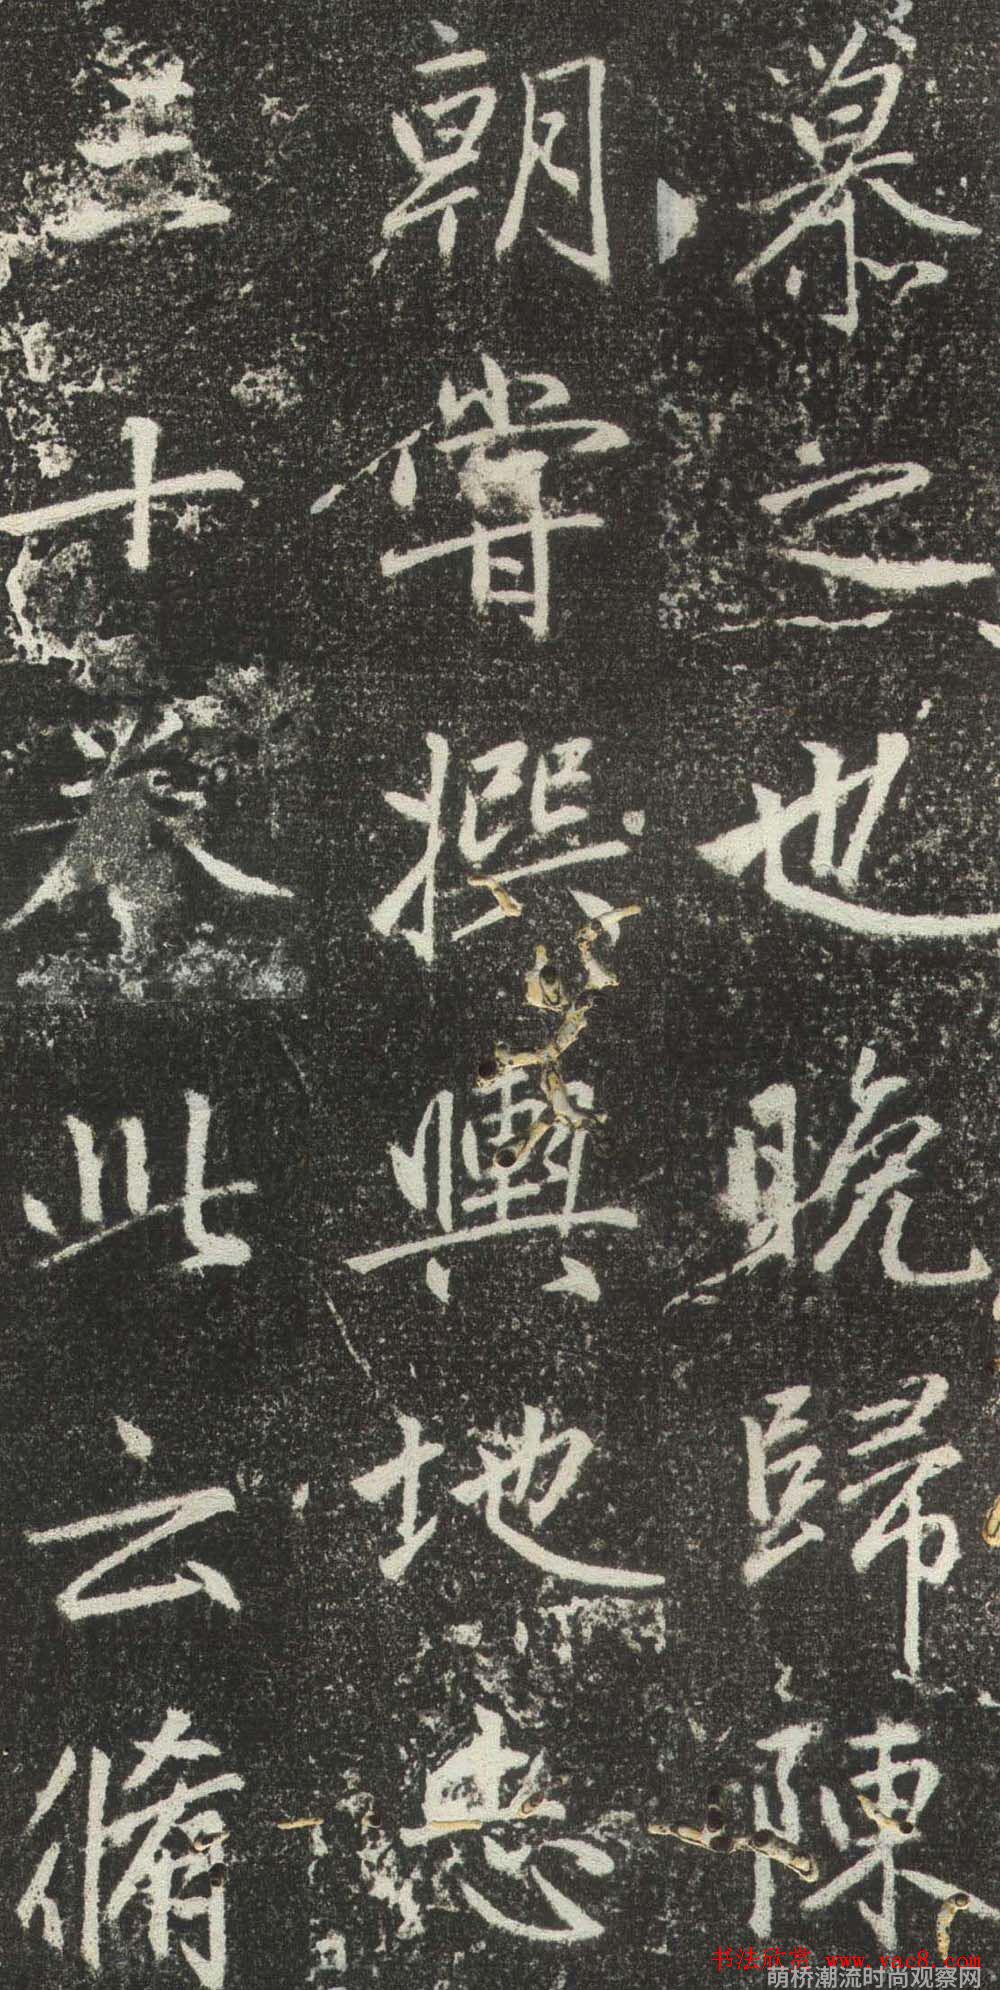 慕之也晚歸陳
朝嘗撰輿地志
三十卷此云脩
书法欣赏 www.yac8.com
萌桥潮流时尚观察网